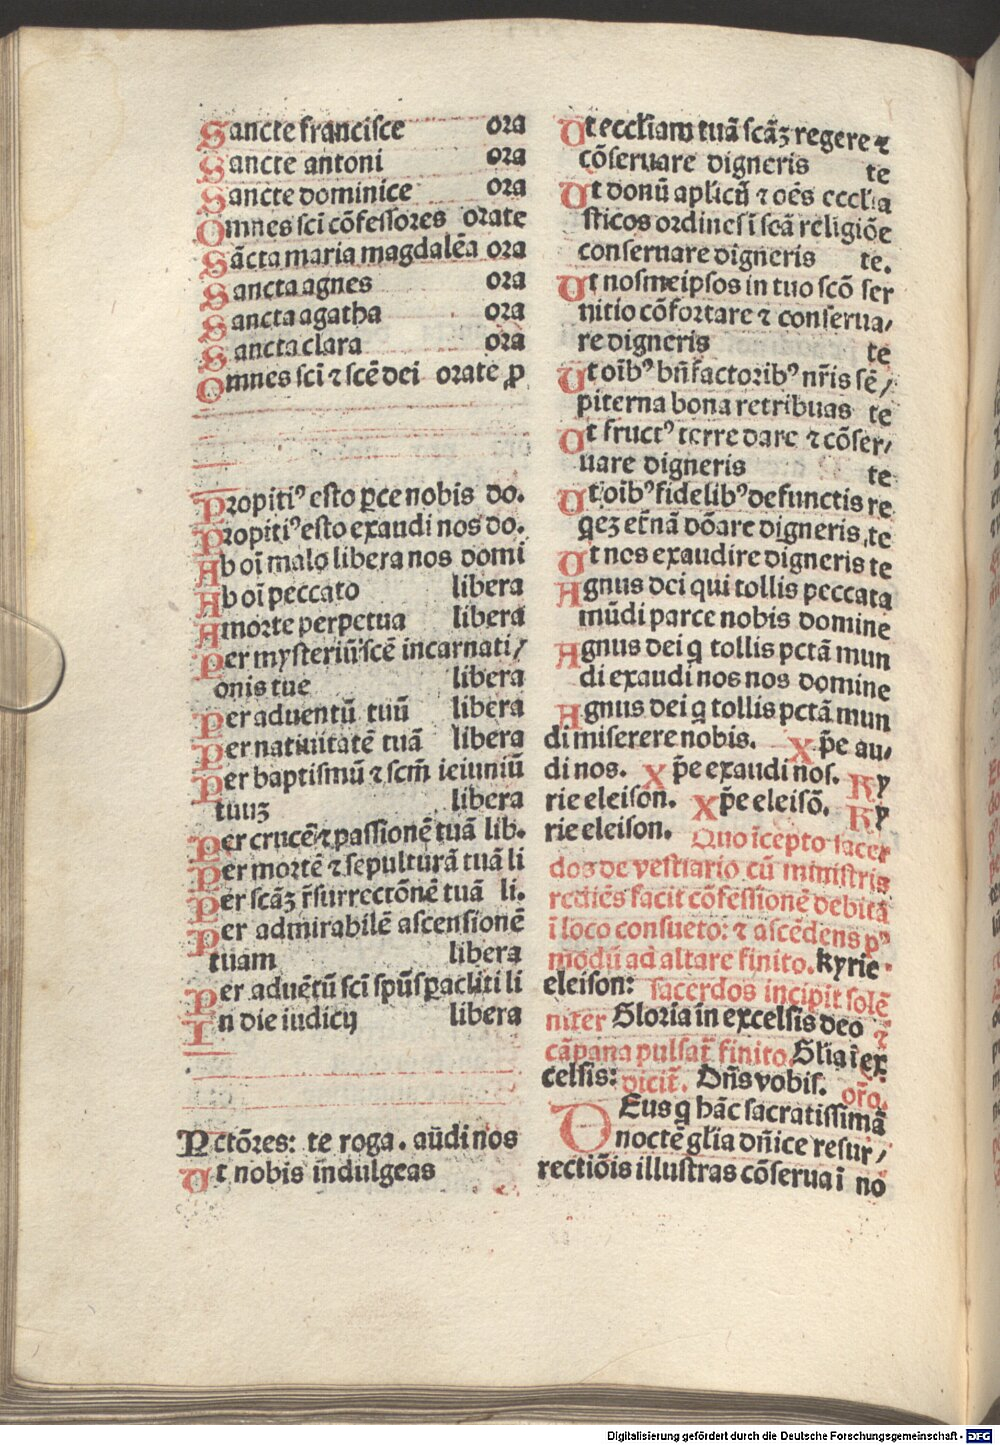 Sancte francisce ora
Sancte antoni ora
Sancte dominice ora
Omnes sci cōfessores orate
Sācta maria magdalēa ora
Sancta agnes ora
Sancta agatha ora
Sancta clara ora
Omnes sci ⁊ scē dei orate ꝓ
Propitiꝰ esto ꝑce nobis do.
Propitiꝰ esto exaudi nos do.
Ab oī malo libera nos domi
Ab oī peccato libera
A morte perpetua libera
Per mysteriū scē incarnati/
onis tue libera
Per aduentū tuū libera
Per natiuitatē tuā libera
Per baptismū ⁊ scm̄ ieiuniū
tuuꝫ libera
Per crucē ⁊ passionē tuā lib.
Per mortē ⁊ sepulturā tuā li
Per scāꝫ r̄surrectōnē tuā li.
Per admirabilē ascensionē
tuam libera
Per aduētū sci spūs ꝑacliti li
In die iudicij libera
Pctōres: te roga. aūdi nos
Ut nobis indulgeas
Ut eccl̄iam tuā scāꝫ regere ⁊
cōseruare digneris te
Ut donū apl̄icū ⁊ oēs eccl̄ia
sticos ordines ī scā religiōe
conseruare digneris te.
Ut nosmeipsos in tuo scō ser
uitio cōfortare ⁊ conserua/
re digneris te
Ut oībꝰ bn̄factoribꝰ nr̄is sē/
piterna bona retribuas te
Ut fructꝰ terre dare ⁊ cōser/
uare digneris te
Ut oībꝰ fidelibꝰ defunctis re
q̄eꝫ et̄nā dōare digneris te
Ut nos exaudire digneris te
Agnus dei qui tollis peccata
mūdi parce nobis domine
Agnus dei q tollis pctā mun
di exaudi nos nos domine
Agnus dei q tollis pctā mun
di miserere nobis. Xp̄e au/
di nos. Xp̄e exaudi nos. Ky
rie eleison. Xp̄e eleisō. Ky
rie eleison. Quo īcepto sacer
dos de vestiario cū ministris
rediēs facit cōfessionē debitā
ī loco consueto: ⁊ ascēdens pꝰ
modū ad altare finito. Kyrie
eleison: sacerdos incipit solē
niter Gloria in excelsis deo ⁊
cāpana pulsat̄ finito. Gl̄ia ī ex
celsis: dicit̄. Dn̄s vobis. or̄o.
DEus q hāc sacratissimā
noctē gl̄ia dn̄ice resur/
rectiōis illustras cōserua ī no
Digitalisierung gefördert durch die Deutsche Forschungsgemeinschaft - DFG